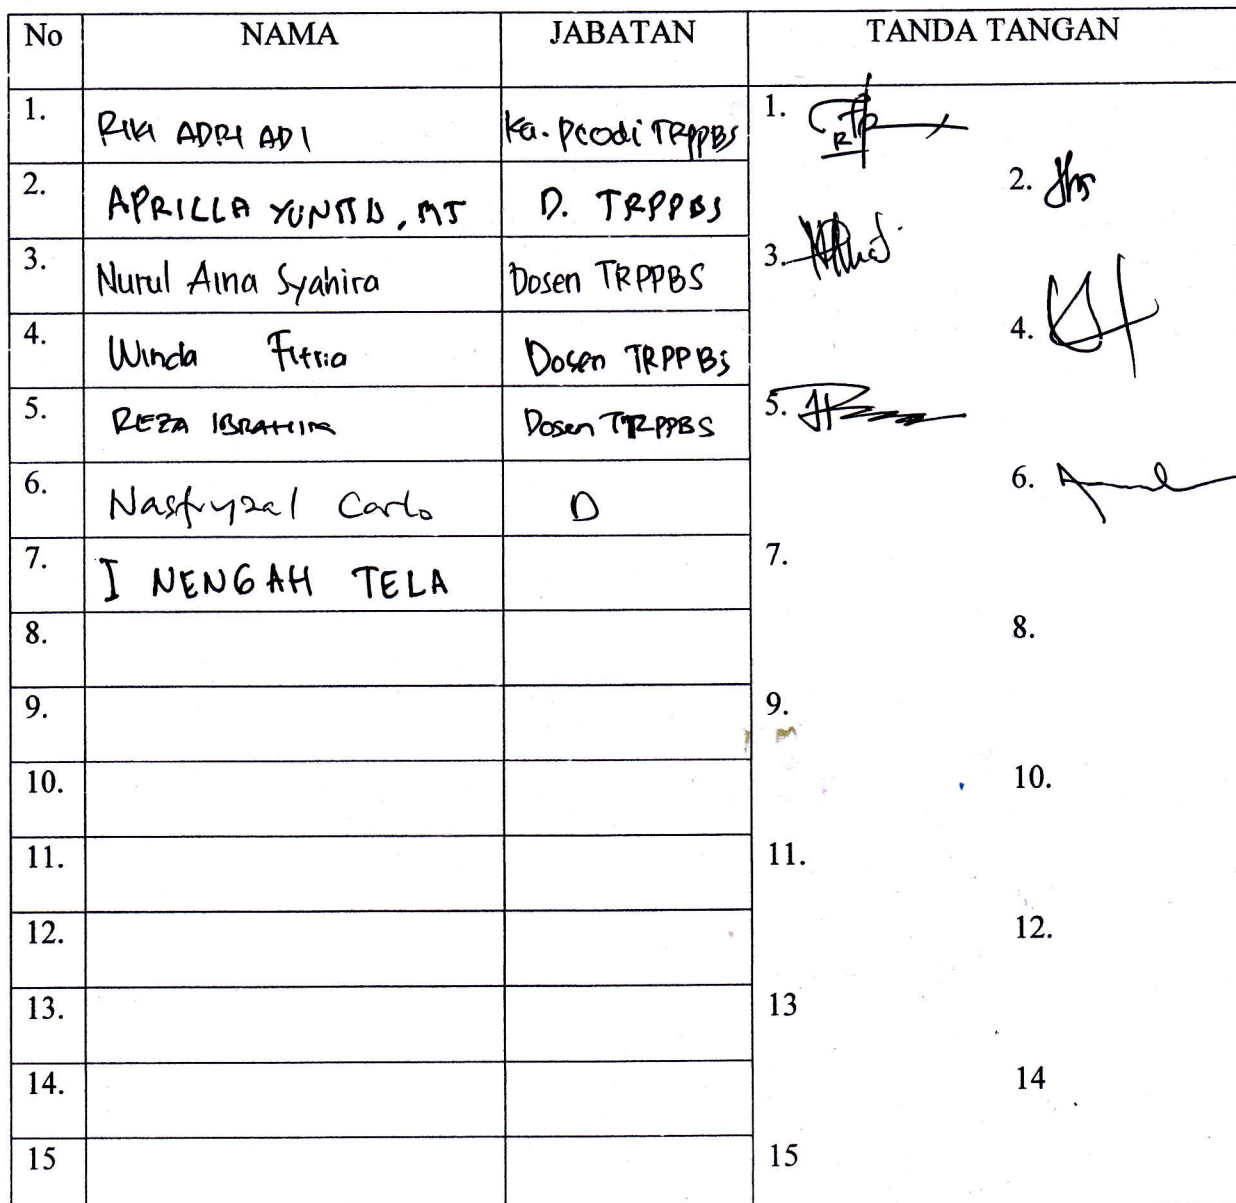 No NAMA JABATAN TANDA TANGAN
1. RIKI ADRI ADI Ka. Prodi TRPPBS 1.
2. APRILLA YUNITA, MT D. TRPPBS 2.
3. Nurul Aina Syahira Dosen TRPPBS 3.
4. Winda Fitria Dosen TRPPBS 4.
5. REZA IBRAHIM Dosen TRPPBS 5.
6. Nasfryzal Carlo D 6.
7. I NENGAH TELA 7.
8. 8.
9. 9.
10. 10.
11. 11.
12. 12.
13. 13
14. 14
15 15